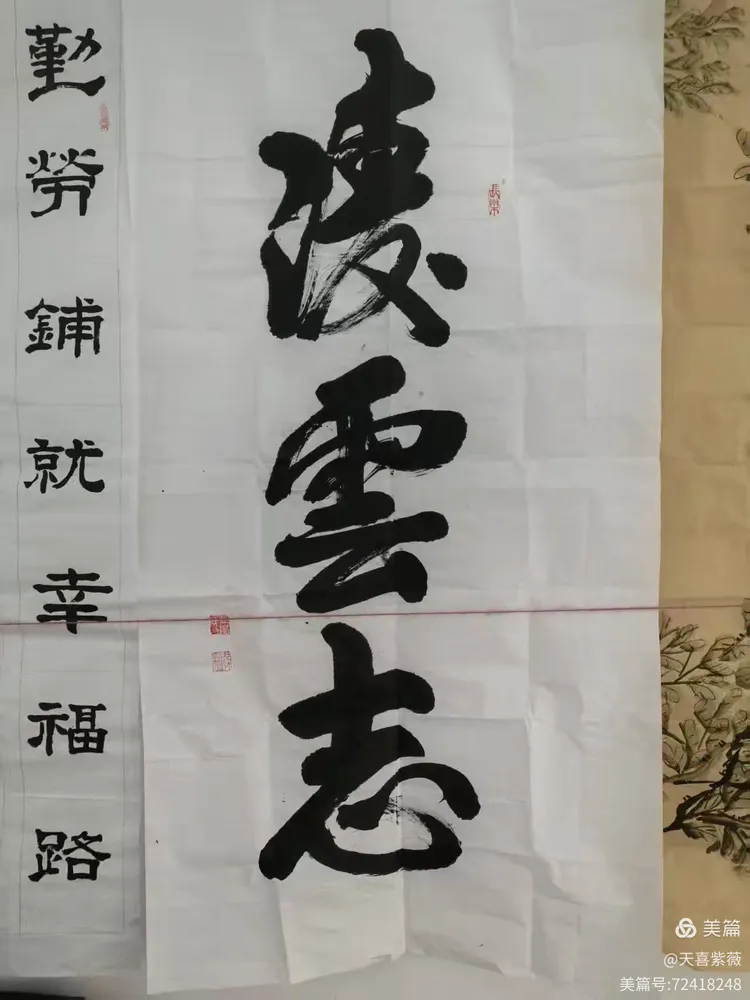 凌雲志
勤勞鋪就幸福路
長樂
美篇
@天喜紫薇
美篇号:72418248